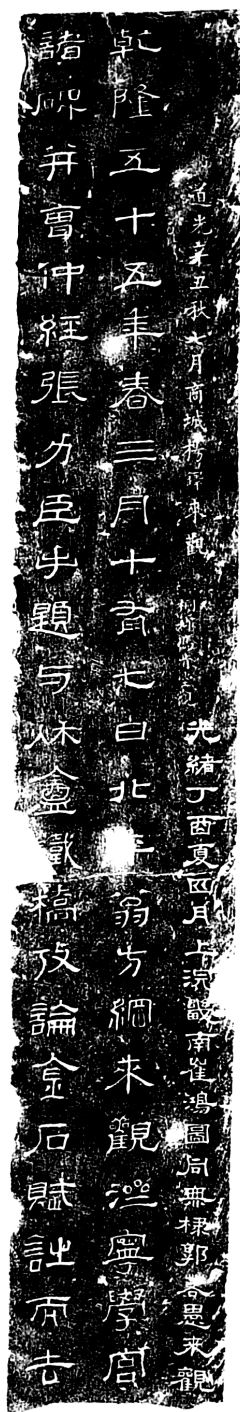 道光辛丑秋七月商城楊鐸來觀
光緒丁酉夏四月上浣畿南崔鴻圖同無棣郭恩來觀
乾隆五十五年春三月十有七日北平翁方綱來觀泲寧學宮
諸碑并曹仲經張力臣手題与秋盦鐵橋攷論金石賦詩而去